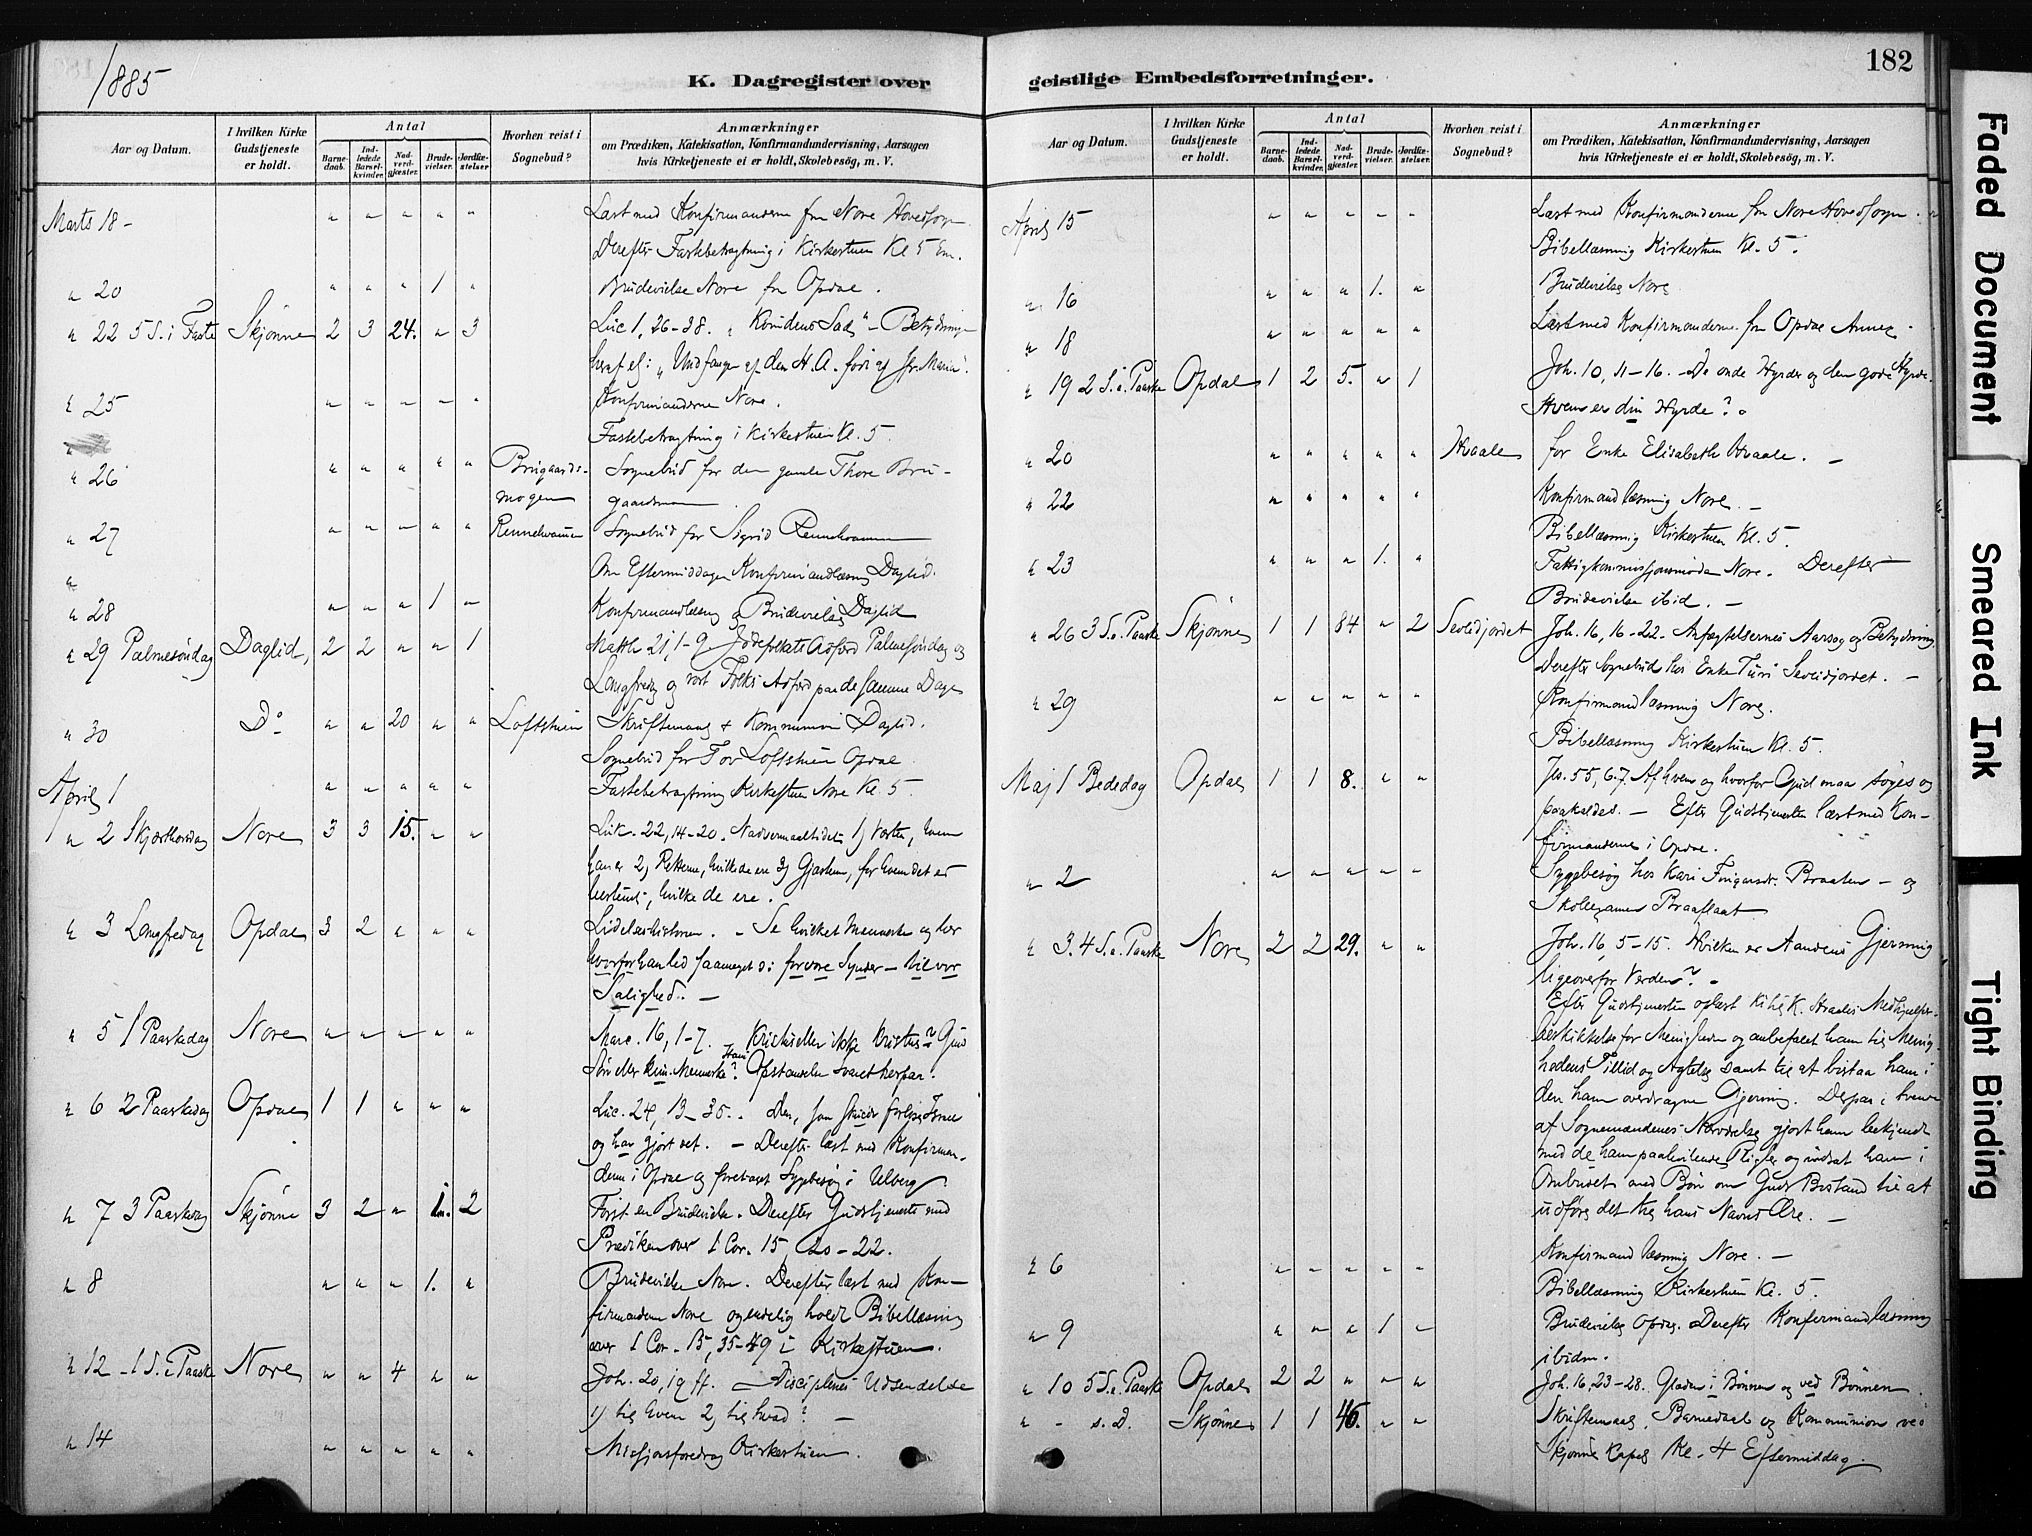 1885
K. Dagregister over
Aar og Datum.
I hvilken Kirke Gudstjeneste er holdt.
Antal
Barne-daab.
Ind-ledede Barsel-kvinder.
Nad-verd-gjæster.
Brude-vielser.
Jordfæ-stelser
Hvorhen reist i Sognebud?
Anmærkninger
om Prædiken, Katekisation, Konfirmandundervisning, Aarsagen
hvis Kirketjeneste ei er holdt, Skolebesög, m. V.
Marts 18 - " " " " " Læst med Konfirmanderne fra Nore Hovedsogn
Derefter Fastebetragtning i Kirkestuen Kl 5 Em.
" 20 " " " 1 " Brudevielse Nore fra Opdal.
" 22 5 S. i Faste Skjønne 2 3 24. " 3 Luc 1, 26-38. " Kvindens Sæd" - Betydningen
" 25 " " " " " Konfirmanderne Nore.
Fastebetragtning i Kirkestuen Kl. 5.
" 26 " " " " " Brugaards- Sognebud for den gamle Thore Bru-
mogen gaardsmoen.
" 27 " " " " " Sognebud for Sigrid
Om Eftermiddagen Konfirmandlæsning Daglid.
" 28 " " " 1 " Konfirmandlæsning og Brudevielse Daglid
" 29 Palmesøndag Daglid, 2 2 " " 1 Matth 21, 1-9. Jødefolkets Adfærd Palmesøndag og
Langfredag og vort Folks Adfærd paa de samme Dage
" 30 Do " " 20 " " Loftstuen Skriftemaal & Kommunion Daglid.
Sognebud for Tov Loftstuen Opdal.
April 1 " " " " " Fastebetragtning Kirkestuen Nore Kl. 5.
" 2 Skjærthorsdag Nore 3 3 15. " " Luk. 22, 14-20. Nadvermaaltidet 1) Verten, hvem
han er 2) Retterne, hvilke de ere 3) Gjæsterne, for hvem det er
bestemt, hvilke de ere.
" 3 Langfredag Opdal 3 2 " " " Lidelseshistorien. - Se hvilket Menneske og hør
hvorfor han led saameget: for vore Synder - til vor
Salighed. -
" 5 1 Paaskedag Nore " " " " " Marc. 16, 1-7. Kristus eller ikke Kristus? Guds
Søn eller kun Menneske? Opstandelsen svaret herpaa.
" 6 2 Paaskedag Opdal 1 1 " " " Luc. 24, 13-35. Den, som skulde forløse Israel
og har gjort det. - Derefter læst med Konfirman-
derne i Opdal og foretaget Sygebesøg i Ulberg.
" 7 3 Paaskedag Skjønne 3 2 " 1. 2 Først en Brudevielse. Derefter Gudstjeneste med
Prædiken over 1 Cor. 15, 20-22.
" 8 " " " 1. " Brudevielse Nore. Derefter læst med Kon-
firmanderne Nore og endelig holdt Bibellæsning
over 1 Cor. 15, 35-49 i Kirkestuen.
" 12 - 1 S. e Paaske Nore " " 4 " " Joh. 20, 19 ff. Disciplenes Udsendelse
1) til hvem 2) til hvad? -
" 14 " " " " " Missjonsforedrag Kirkestuen.
geistlige Embedsforretninger.
182
Aar og Datum.
I hvilken Kirke Gudstjeneste er holdt.
Antal
Barne-daab.
Ind-ledede Barsel-kvinder.
Nad-verd-gjæster.
Brude-vielser.
Jordfæ-stelser.
Hvorhen reist i Sognebud?
Anmærkninger
om Prædiken, Katekisation, Konfirmandundervisning, Aarsagen
hvis Kirketjeneste ei er holdt, Skolebesög, m. V.
April 15 " " " " " Læst med Konfirmanderne fra Nore Hovedsogn.
Bibellæsning Kirkestuen Kl. 5.
" 16 " " " 1. " Brudevielse Nore
" 18 " " " " " Læst med Konfirmanderne fra Opdal Annex.
" 19 2 S. e. Paaske Opdal 1 2 5. " 1 Joh. 10, 11-16. De onde Hyrder og den gode Hyrde.
Hvem er din Hyrde?
" 20 " " " " " Hvaale for Enke Elisabeth Hvaale. -
" 22 " " " " " Konfirmandlæsning Nore. -
Bibellæsning Kirkestuen Kl. 5.
" 23 " " " 1. " Fattigkommissjonsmøde Nore. Derefter
Brudevielse ibid. -
" 26 3 S. e. Paaske Skjønne 1 1 84 " 2 Sevlidjordet Joh. 16, 16-22. Anfægtelsernes Aarsag og Betydning.
Derefter Sognebud hos Enke Turi Sevlidjordet. -
" 29 " " " " " Konfirmandlæsning Nore.
Bibellæsning Kirkestuen Kl. 5.
Maj 1 Bededag Opdal 1 1 8. " " Jes. 55, 6.7. Af hvem og hvorfor Gud maa søges og
paakaldes. - Efter Gudstjenesten læst med Kon-
firmanderne i Opdal.
" 2 " " " " " Sygebesøg hos Kari Braaten - og
Braaflaat
" 3. 4 S. e. Paaske Nore 2 2 29. " " Joh. 16, 5-15. Hvilken er Aandens Gjerning
ligeoverfor Verden? -
Efter Gudstjenesten oplæst K. Hvaales Medhjælper-
beskikkelse for Menigheden og anbefalet ham til Menig-
hedens Tillid og Agtelse samt til at bistaa ham i
den ham overdragne Gjerning. Derpaa i tvende
af Sognemændenes Nærværelse gjort ham bekjendt
med de ham paahvilende Pligter og indsat ham i
Ombudet med Bøn om Guds Bistand til at
udføre det til hans Navns Ære. -
" 6 " " " " " Konfirmandlæsning Nore. -
Bibellæsning Kirkestuen Kl. 5.
" 9 " " " 1 " Brudevielse Opdal. Derefter Konfirmandlæsning
ibidm.
" 10 5 S. e. Paaske Opdal 2 2 " " " Joh. 16, 23-28. Glæden i Bønnen og ved Bønnen.
" - s. D. Skjønne 1 1 46. " " Skriftemaal, Barnedaab og Kommunion ved
Skjønne Kapel Kl. 4 Eftermiddag.
Faded Document
Smeared Ink
Tight Binding